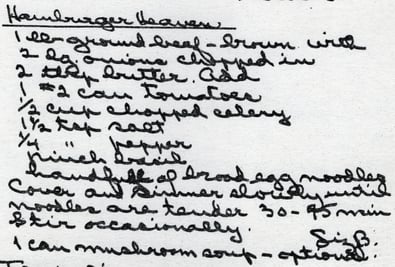 Hamburger Heaven
1 lb ground beef - brown with
2 lg. onions chopped in
2 tbsp butter. Add
1 #2 can tomatoes
1/2 cup chopped celery
1 1/2 tsp salt
1/4 " pepper
pinch basil
handfull of broad egg noodles
Cover and simmer slowly until
noodles are tender 30-45 min
Stir occasionally.
1 can mushroom soup - optional.